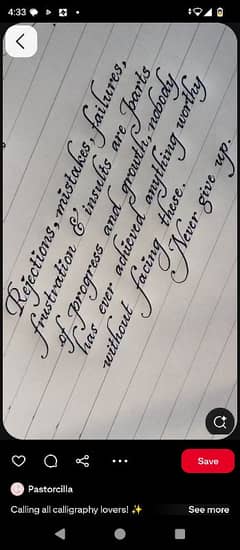 4:33
Rejections, mistakes, failures,
frustration & insults are parts
of progress and growth, nobody
has ever achieved anything worthy
without facing these.
Never give up.
Save
Pastorcilla
Calling all calligraphy lovers! ✨
See more